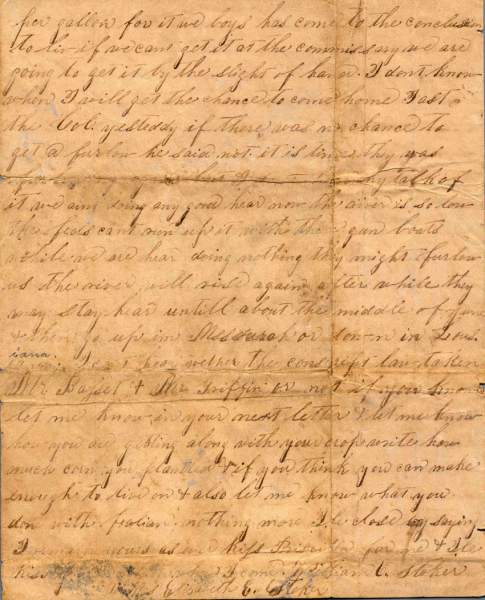 per gallon for it we boys has come to the conclusion
to liv if we cant get it at the commissary we are
going to get it by the slight of hand. I dont know
when I will get the chance to come home I ast
the Col. yesteddy if there was no chance to
get a furlow he said not it is time they was
talk of
it we aint doing any good hear now the river is so low
the feds cant run up it with there gun boats
while we are hear doing nothing they might furlow
us the river will rise again after while they
may stay hear untill about the middle of June
& then go up in Messourah or down in Lous
iana. I dont know wether the conscrept law taken
Mr Basset & Mr Griffin or not if you know
let me know in your next letter & let me know
how you are gitting along with your crop write how
much corn you planted & if you think you can make
enough to live on & also let me know what you
don with nothing more Ile close by saying
I remain yours as ever Kiss for me & Ile
I come William E. Stoker
Elizabeth E. Stoker